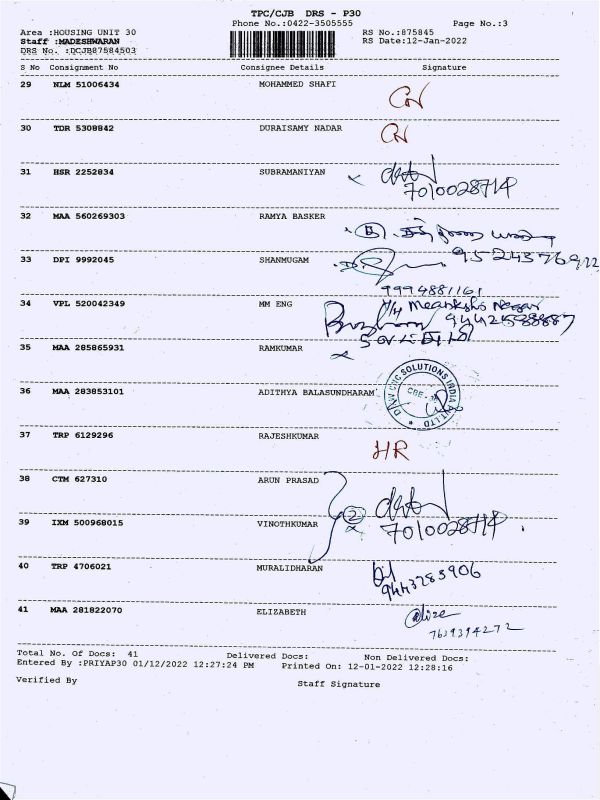 TPC/CJB DRS - P30
Phone No.:0422-3505555
Page No.:3
Area :HOUSING UNIT 30
RS No.:875845
Staff :MADESHWARAN
RS Date:12-Jan-2022
DRS No. :DCJB87584503
S No Consignment No Consignee Details Signature
29 NLM 51006434 MOHAMMED SHAFI
30 TDR 5308842 DURAISAMY NADAR
31 HSR 2252834 SUBRAMANIYAN
7010028714
32 MAA 560269303 RAMYA BASKER
33 DPI 9992045 SHANMUGAM
9994881161
34 VPL 520042349 MM ENG
35 MAA 285865931 RAMKUMAR
36 MAA 283853101 ADITHYA BALASUNDHARAM
CNC SOLUTIONS INDIA
37 TRP 6129296 RAJESHKUMAR
HR
38 CTM 627310 ARUN PRASAD
2
39 IXM 500968015 VINOTHKUMAR
7010028714
40 TRP 4706021 MURALIDHARAN
9443283906
41 MAA 281822070 ELIZABETH
7629394272
Total No. Of Docs: 41 Delivered Docs: Non Delivered Docs:
Entered By :PRIYAP30 01/12/2022 12:27:24 PM Printed On: 12-01-2022 12:28:16
Verified By Staff Signature